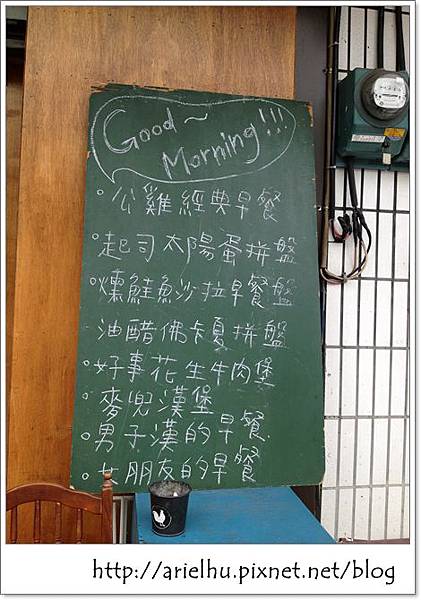 Good~
Morning!!!
公雞經典早餐
起司太陽蛋拼盤
燻鮭魚沙拉早餐盤
油醋佛卡夏拼盤
好事花生牛肉堡
麥兜漢堡
男子漢的早餐
女朋友的早餐
http://arielhu.pixnet.net/blog